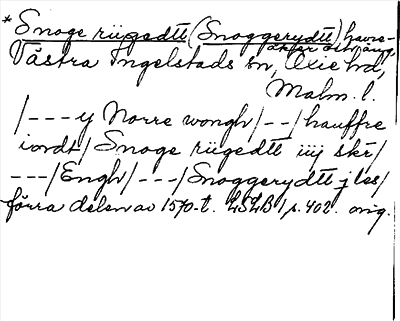 * Snoge rügedtt (Snoggerydtt) havre-
åker och äng,
Västra Ingelstads sn, Oxie hd,
Malm. l.
/---y Norre wongh/--/hauffre
iordt/ Snoge rügedtt iiij skr/
---/Engh/---/Snoggerydtt j les/
förra delen av 1570-t. LSLB 1 s. 402. orig.